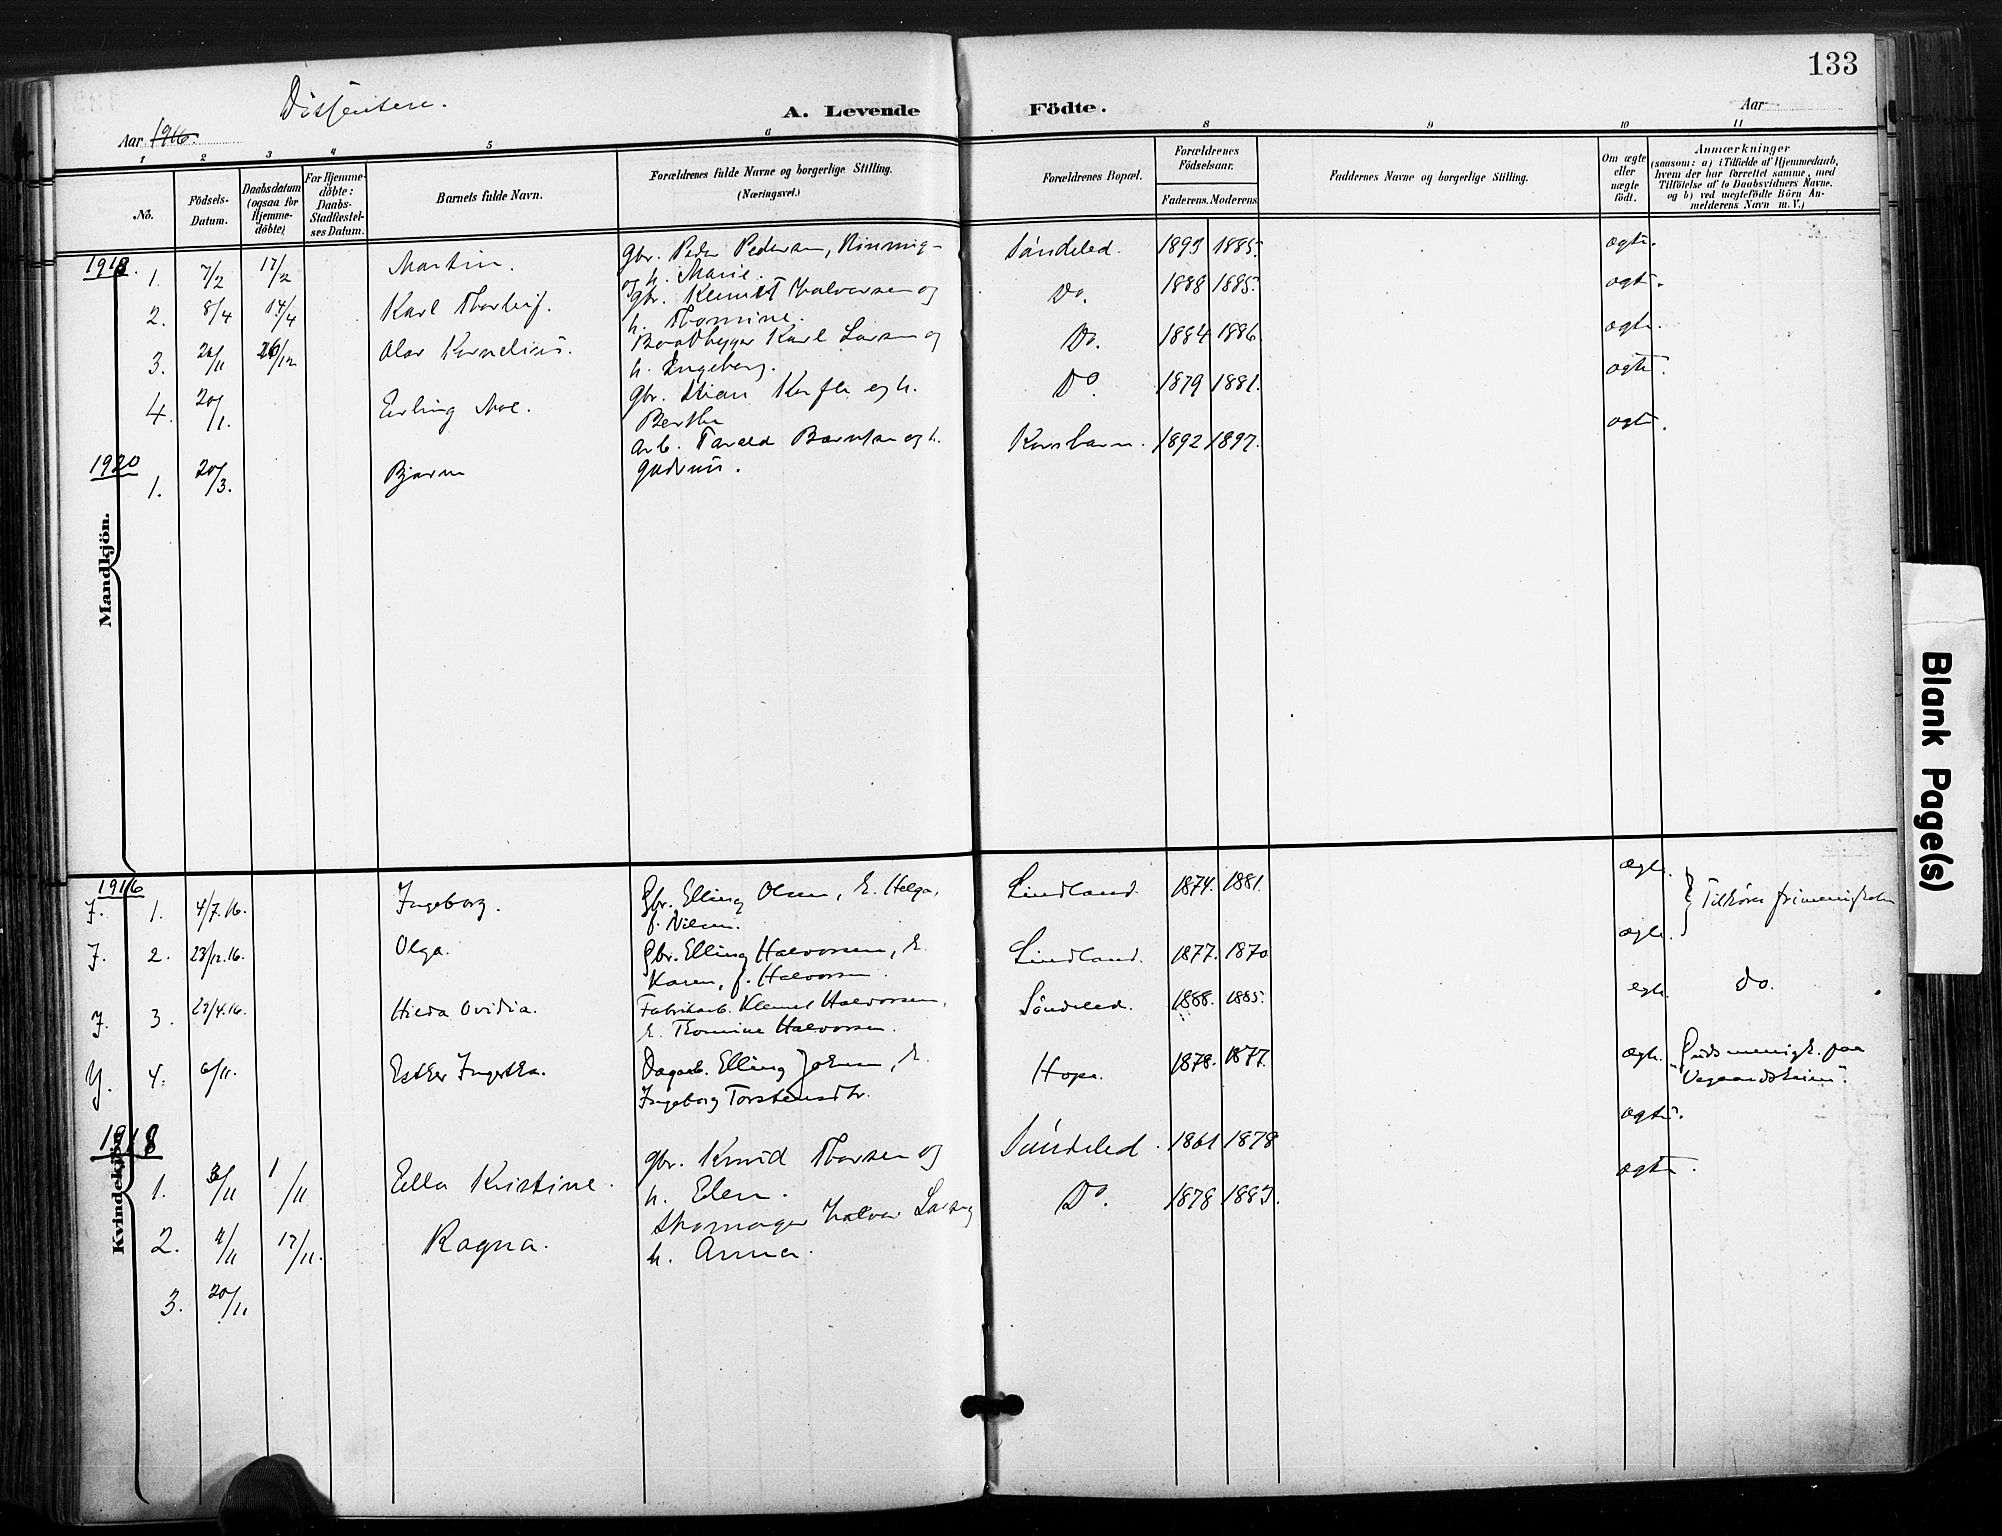 133
Dissentere.
A. Levende Födte.
Aar 1916.
Aar
1 2 3 4 5 6 8 9 10 11
No.
Födsels-Datum.
Daabsdatum (ogsaa for Hjemme-döbte)
For Hjemme-döbte: Daabs-Stadfæstel-ses Datum.
Barnets fulde Navn.
Forældrenes fulde Navne og borgerlige Stilling.
(Næringsvei.)
Forældrenes Bopæl.
Forældrenes Födselsaar.
Faderens. Moderens.
Faddernes Navne og borgerlige Stilling.
Om ægte eller uægte födt.
Anmærkninger
(saasom: a) i Tilfælde af Hjemmedaab, hvem der har forrettet samme, med Tilföielse af to Daabsvidners Navne, og b) ved uægtefödte Börn An-melderens Navn m. V.)
Mandkjön.
1918.
1. 7/2 17/2 Martin. gbr. Peder Pedersen, og h. Marie. Söndeled. 1893 1885. ægte.
2. 8/4 14/4 Karl Thorleif. gbr. Klemet Halvorsen og h. Thomine. Do. 1888 1885. ægte.
3. /11 26/12 Olav Kornelius. Baadbygger Karl Larsen og h. Ingeborg. Do. 1884 1886 ægte.
4. 20/11. Erling Moe. gbr. og h. Berthe Do 1879 1881. ægte.
1920
1. 20/3. Bjarne arb. Tarald og h. Gudrun. 1892 1897. ægte.
Kvindekjön.
1916
J. 1. 4/7.16. Ingeborg. Gbr. Elling Olsen, h. Helga, f. Nilsen. Lindland. 1874. 1881. ægte. Tilhører frimenigheden
J. 2. 23/12.16. Olga. Gbr. Elling Halvorsen, h. Karen, f. Halvorsen. Lindland. 1877. 1870 ægte.
J. 3. 23/4.16. Hilda Ovidia. Fabrikarb. Klemet Halvorsen, h. Thomine Halvorsen. Söndeled. 1888. 1885. egte. do.
4. 6/11. Ester Ingerthea. Dagarb. Elling Johnsen, h. Ingeborg Torstensdtr. Hope. 1878. 1877. ægte. Guds menigh. paa "Vegaardsheim".
1918
1. 3/11 1/11 Ella Kristine. gbr. Knud Thorsen og h. Elen. Söndeled. 1861 1878 ægte.
2. 4/11 17/11. Ragna. Skomager Halvor Larsen og h. Anna. Do. 1878 1883. ægte.
3. 20/11
Blank Page(s)